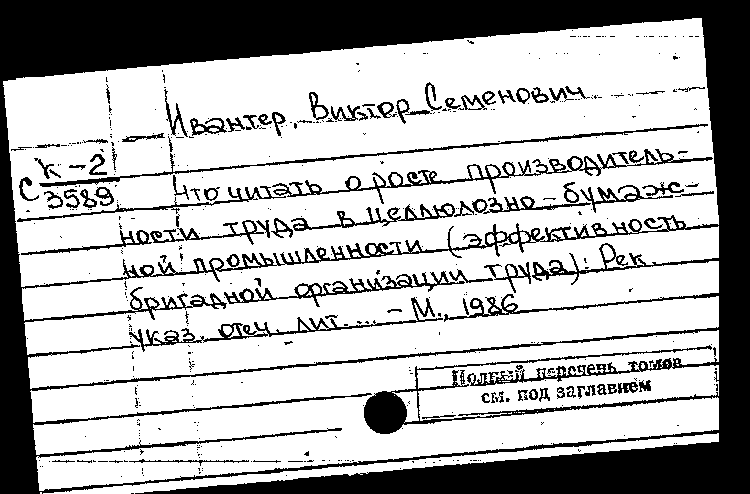 Ивантер, Виктор Семенович
С К-2
3589
Что читать о росте производитель-
ности труда в целлюлозно-бумаж-
ной промышленности (эффективность
бригадной организации труда): Рек.
указ. отеч. лит. ... - М., 1986
Полный перечень томов
см. под заглавием